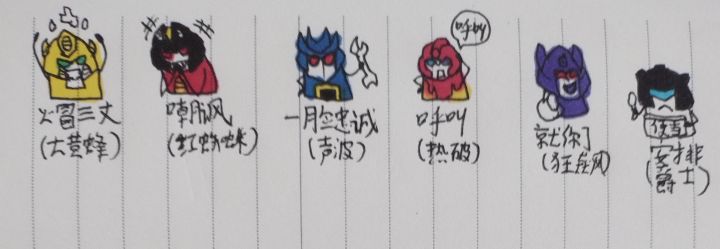 呼叫
火冒三丈
(大黄蜂)
(红蜘蛛)
一脸忠诚
(声波)
呼叫
(热破)
就你了
安排
(爵士)